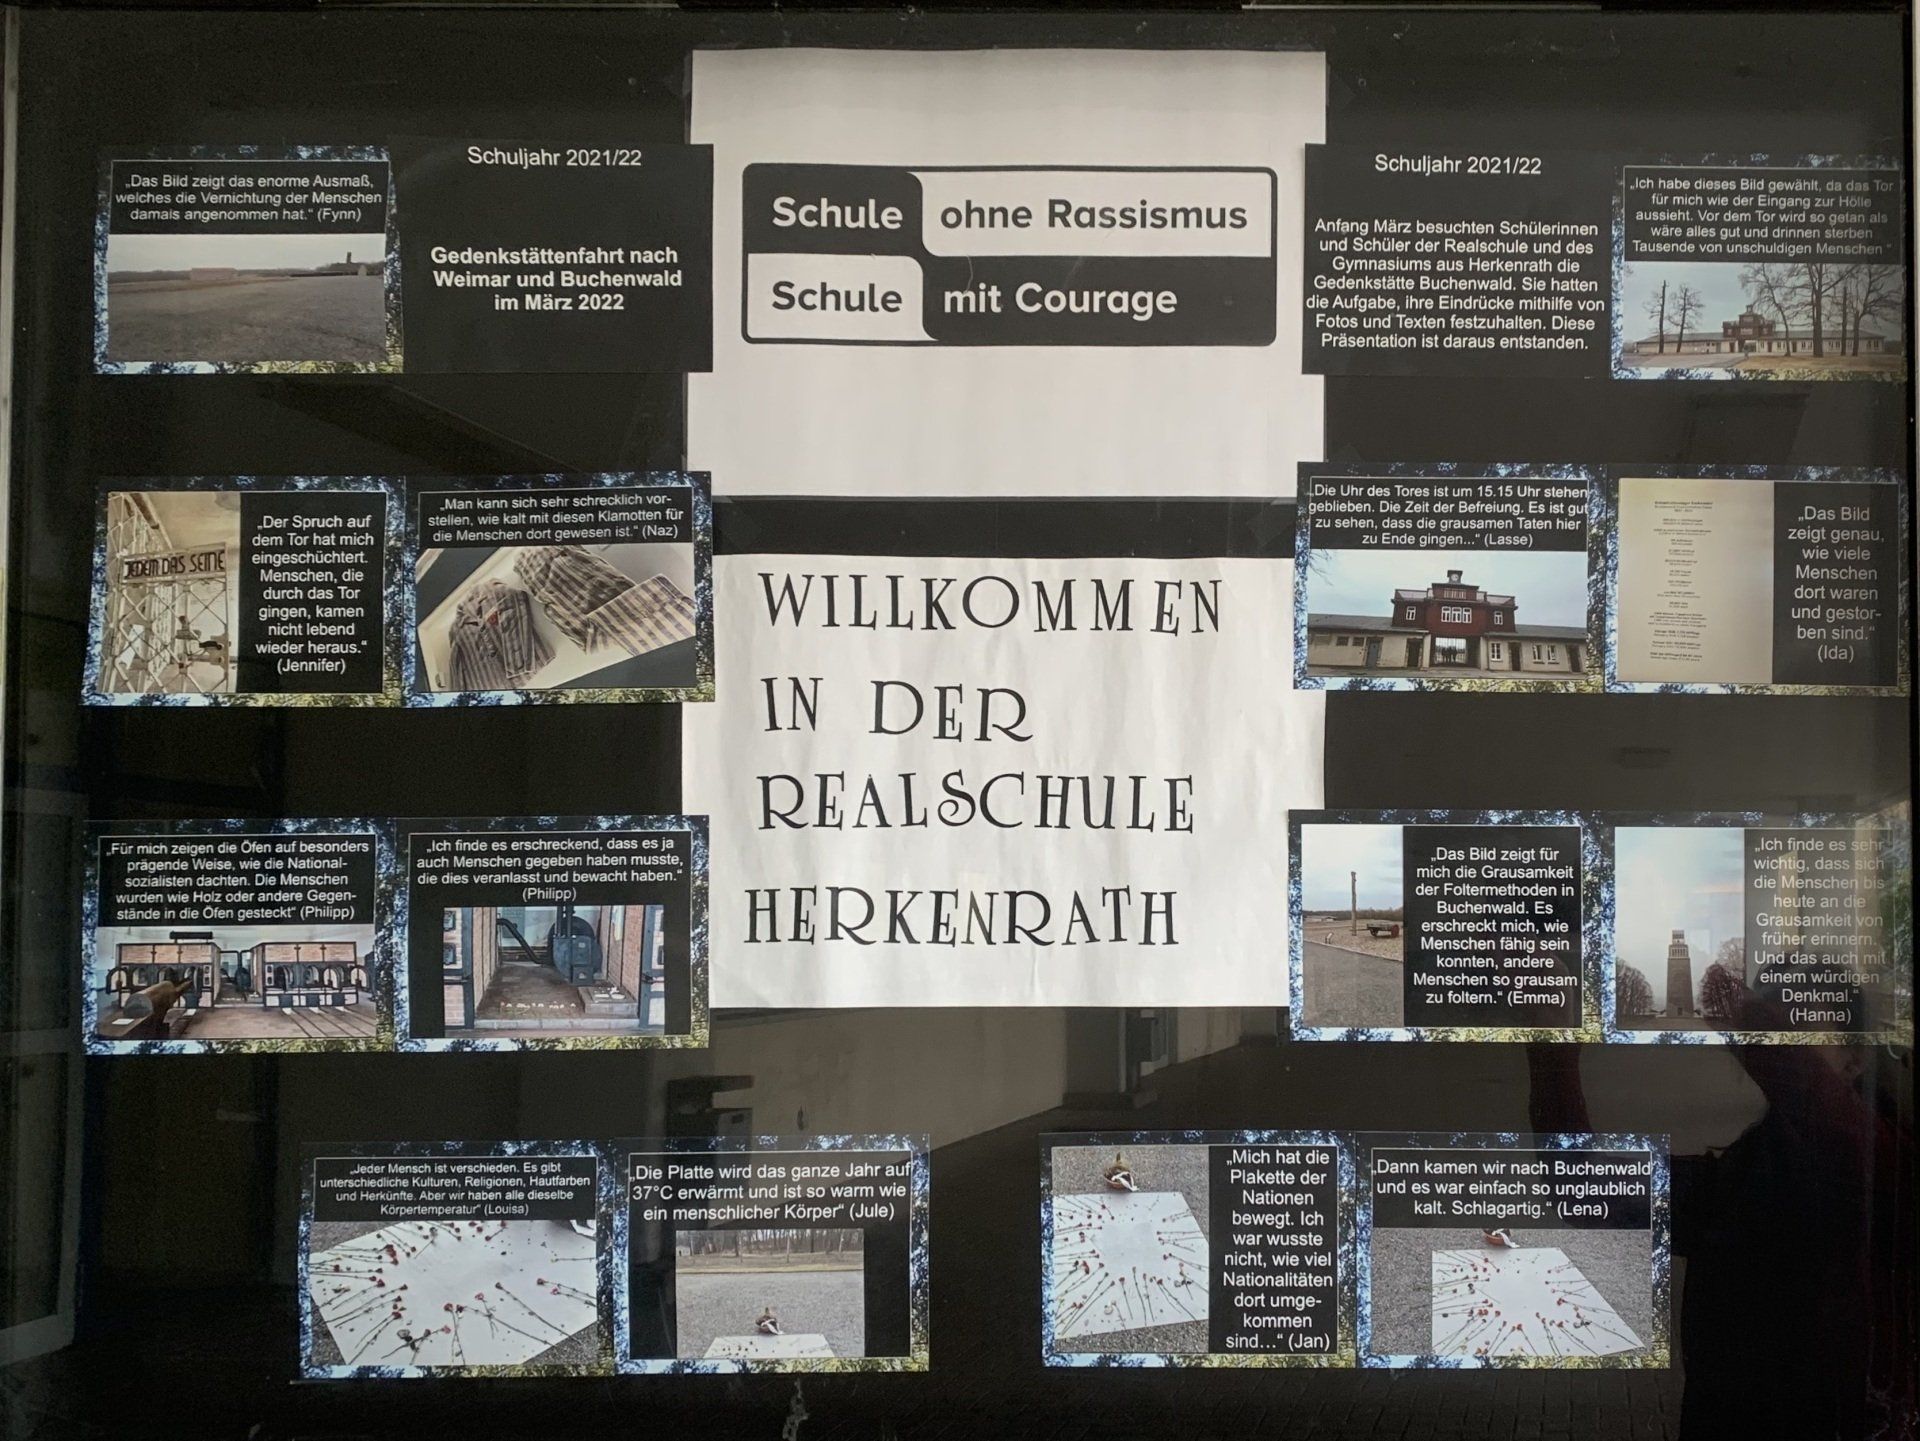 „Das Bild zeigt das enorme Ausmaß,
welches die Vernichtung der Menschen
damals angenommen hat.“ (Fynn)
Schuljahr 2021/22
Gedenkstättenfahrt nach
Weimar und Buchenwald
im März 2022
Schule ohne Rassismus
Schule mit Courage
Schuljahr 2021/22
Anfang März besuchten Schülerinnen
und Schüler der Realschule und des
Gymnasiums aus Herkenrath die
Gedenkstätte Buchenwald. Sie hatten
die Aufgabe, ihre Eindrücke mithilfe von
Fotos und Texten festzuhalten. Diese
Präsentation ist daraus entstanden.
„Ich habe dieses Bild gewählt, da das Tor
für mich wie der Eingang zur Hölle
aussieht. Vor dem Tor wird so getan als
wäre alles gut und drinnen sterben
Tausende von unschuldigen Menschen “
JEDEM DAS SEINE
„Der Spruch auf
dem Tor hat mich
eingeschüchtert.
Menschen, die
durch das Tor
gingen, kamen
nicht lebend
wieder heraus.“
(Jennifer)
„Man kann sich sehr schrecklich vor-
stellen, wie kalt mit diesen Klamotten für
die Menschen dort gewesen ist.“ (Naz)
WILLKOMMEN
IN DER
REALSCHULE
HERKENRATH
„Die Uhr des Tores ist um 15.15 Uhr stehen
geblieben. Die Zeit der Befreiung. Es ist gut
zu sehen, dass die grausamen Taten hier
zu Ende gingen...“ (Lasse)
„Das Bild
zeigt genau,
wie viele
Menschen
dort waren
und gestor-
ben sind.“
(Ida)
„Für mich zeigen die Öfen auf besonders
prägende Weise, wie die National-
sozialisten dachten. Die Menschen
wurden wie Holz oder andere Gegen-
stände in die Öfen gesteckt“ (Philipp)
„Ich finde es erschreckend, dass es ja
auch Menschen gegeben haben musste,
die dies veranlasst und bewacht haben.“
(Philipp)
„Das Bild zeigt für
mich die Grausamkeit
der Foltermethoden in
Buchenwald. Es
erschreckt mich, wie
Menschen fähig sein
konnten, andere
Menschen so grausam
zu foltern.“ (Emma)
„Ich finde es sehr
wichtig, dass sich
die Menschen bis
heute an die
Grausamkeit von
früher erinnern.
Und das auch mit
einem würdigen
Denkmal.“
(Hanna)
„Jeder Mensch ist verschieden. Es gibt
unterschiedliche Kulturen, Religionen, Hautfarben
und Herkünfte. Aber wir haben alle dieselbe
Körpertemperatur“ (Louisa)
„Die Platte wird das ganze Jahr auf
37°C erwärmt und ist so warm wie
ein menschlicher Körper“ (Jule)
„Mich hat die
Plakette der
Nationen
bewegt. Ich
war wusste
nicht, wie viel
Nationalitäten
dort umge-
kommen
sind...“ (Jan)
„Dann kamen wir nach Buchenwald
und es war einfach so unglaublich
kalt. Schlagartig.“ (Lena)